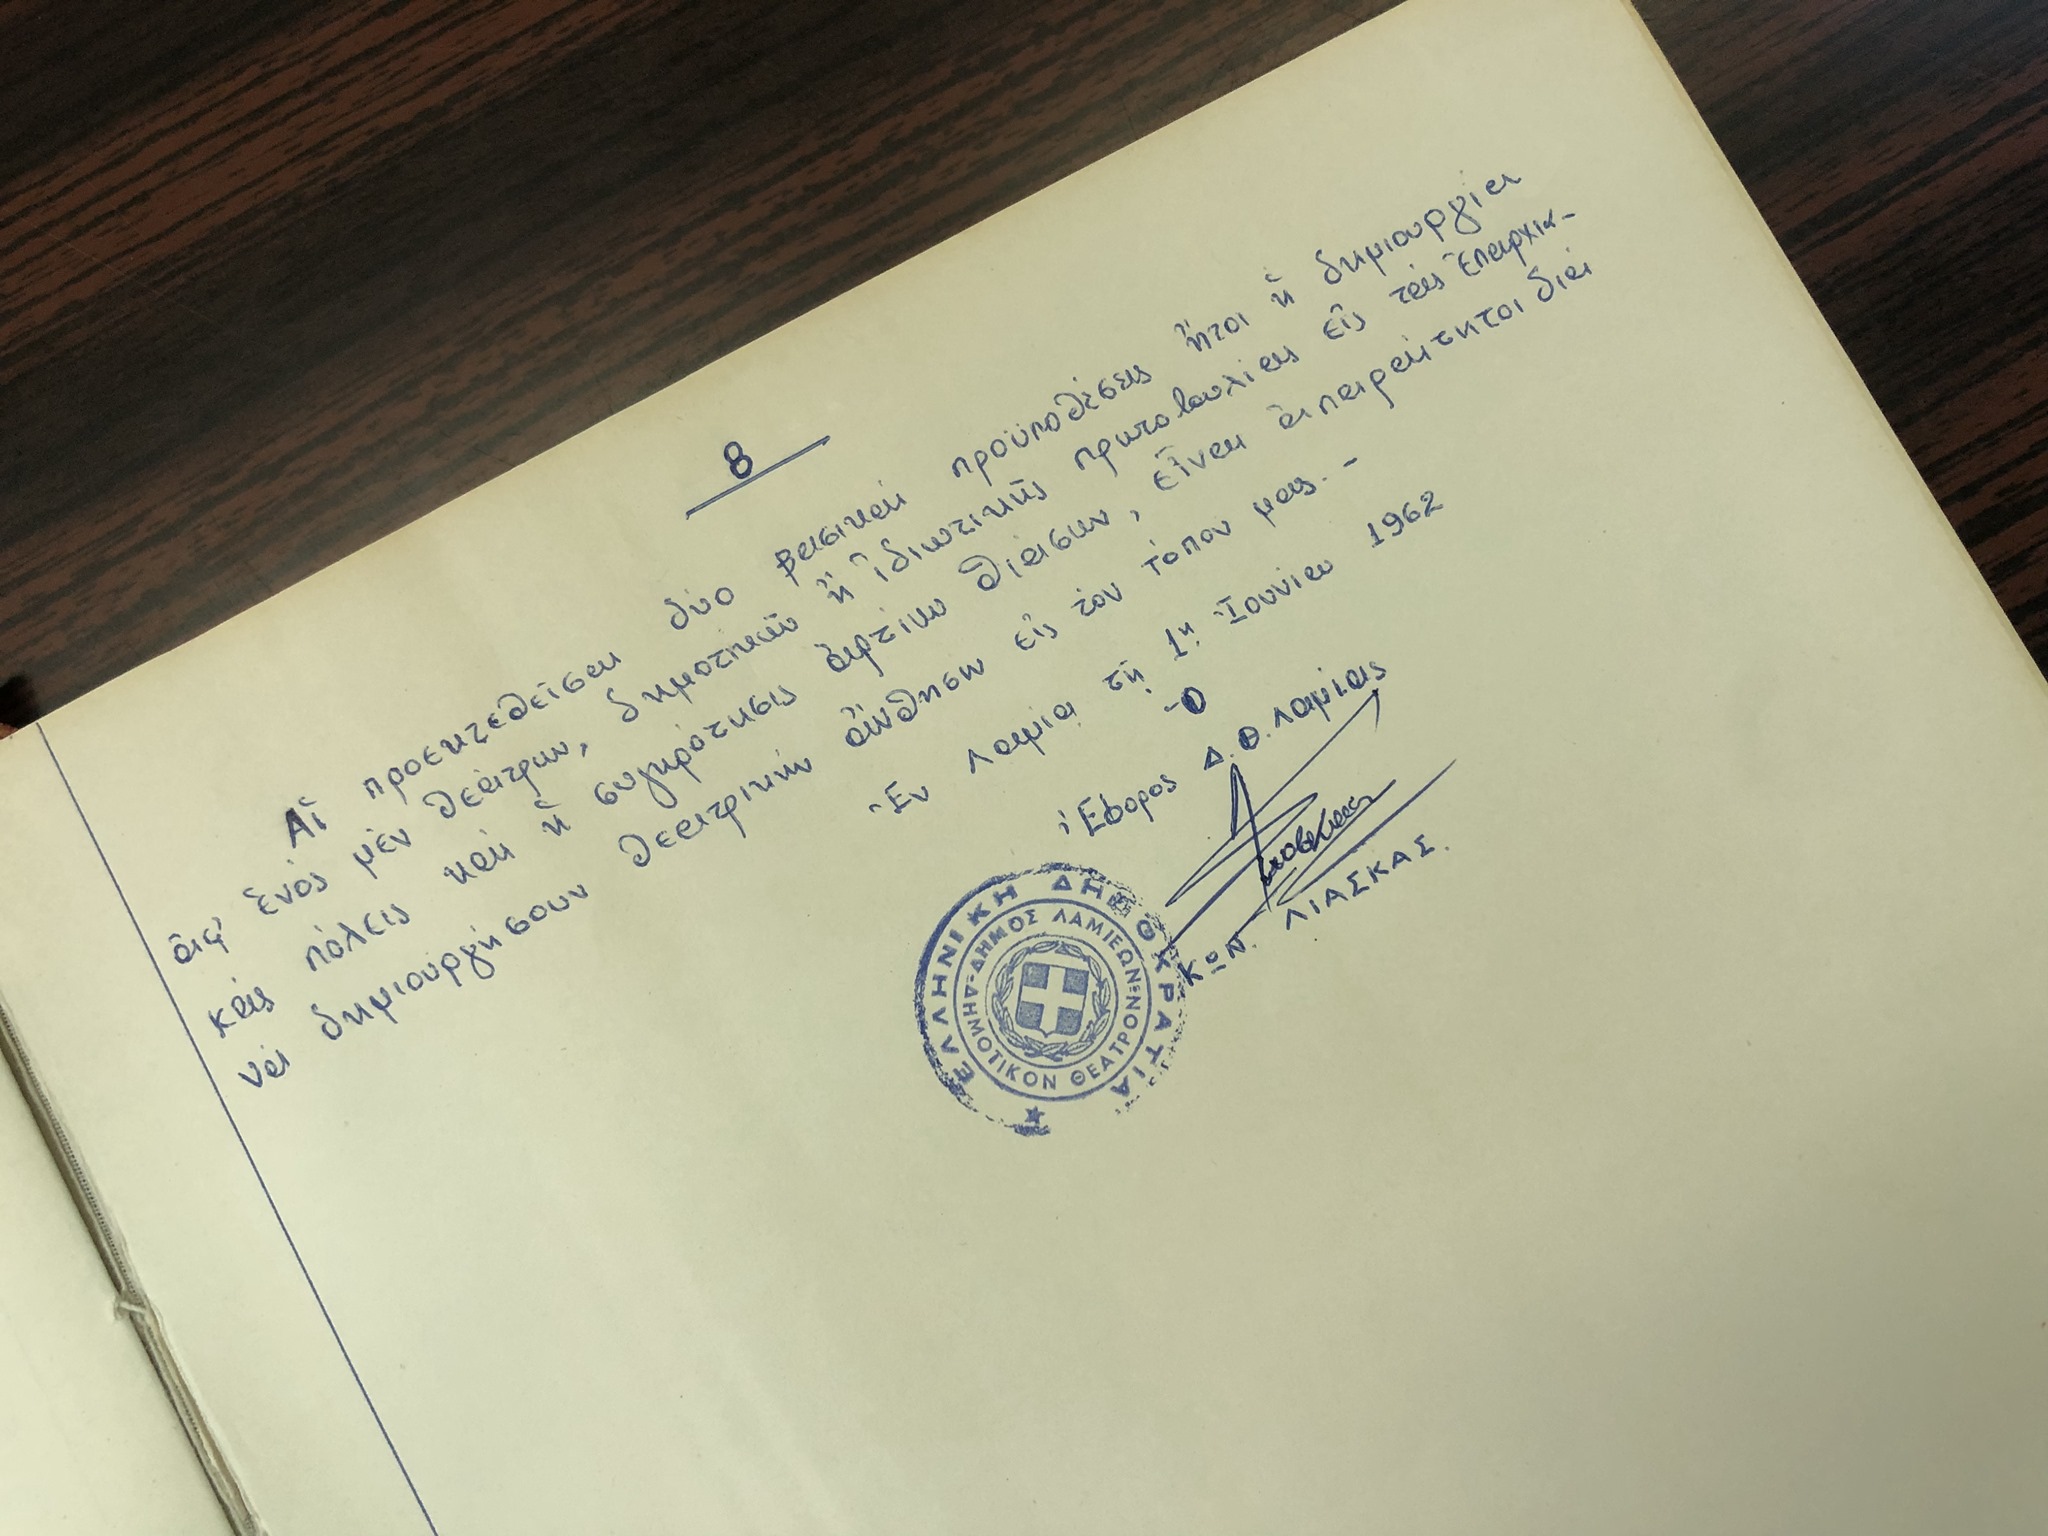 8
Αἵ προεκτεθεῖσαι δύο βασικαί προϋποθέσεις ἤτοι ἡ δημιουργία
ἀφ' ἑνός μέν θεάτρων, δημοτικῶν ἤ ἰδιωτικῆς πρωτοβουλίας εἰς τάς ἐπαρχια-
κάς πόλεις καί ἡ συγκρότησις ἀρτίων θιάσων, εἶναι ἀπαραίτητοι διά
νά δημιουργήσουν θεατρικήν ἄνθησιν εἰς τόν τόπον μας. -
Ἐν Λαμίᾳ τῇ 1ῃ Ἰουνίου 1962
-Ο
Ἔφορος Δ.Θ. Λαμίας
ΚΩΝ. ΛΙΑΣΚΑΣ.
ΕΛΛΗΝΙΚΗ ΔΗΜΟΚΡΑΤΙΑ
ΔΗΜΟΣ ΛΑΜΙΕΩΝ
ΔΗΜΟΤΙΚΟΝ ΘΕΑΤΡΟΝ